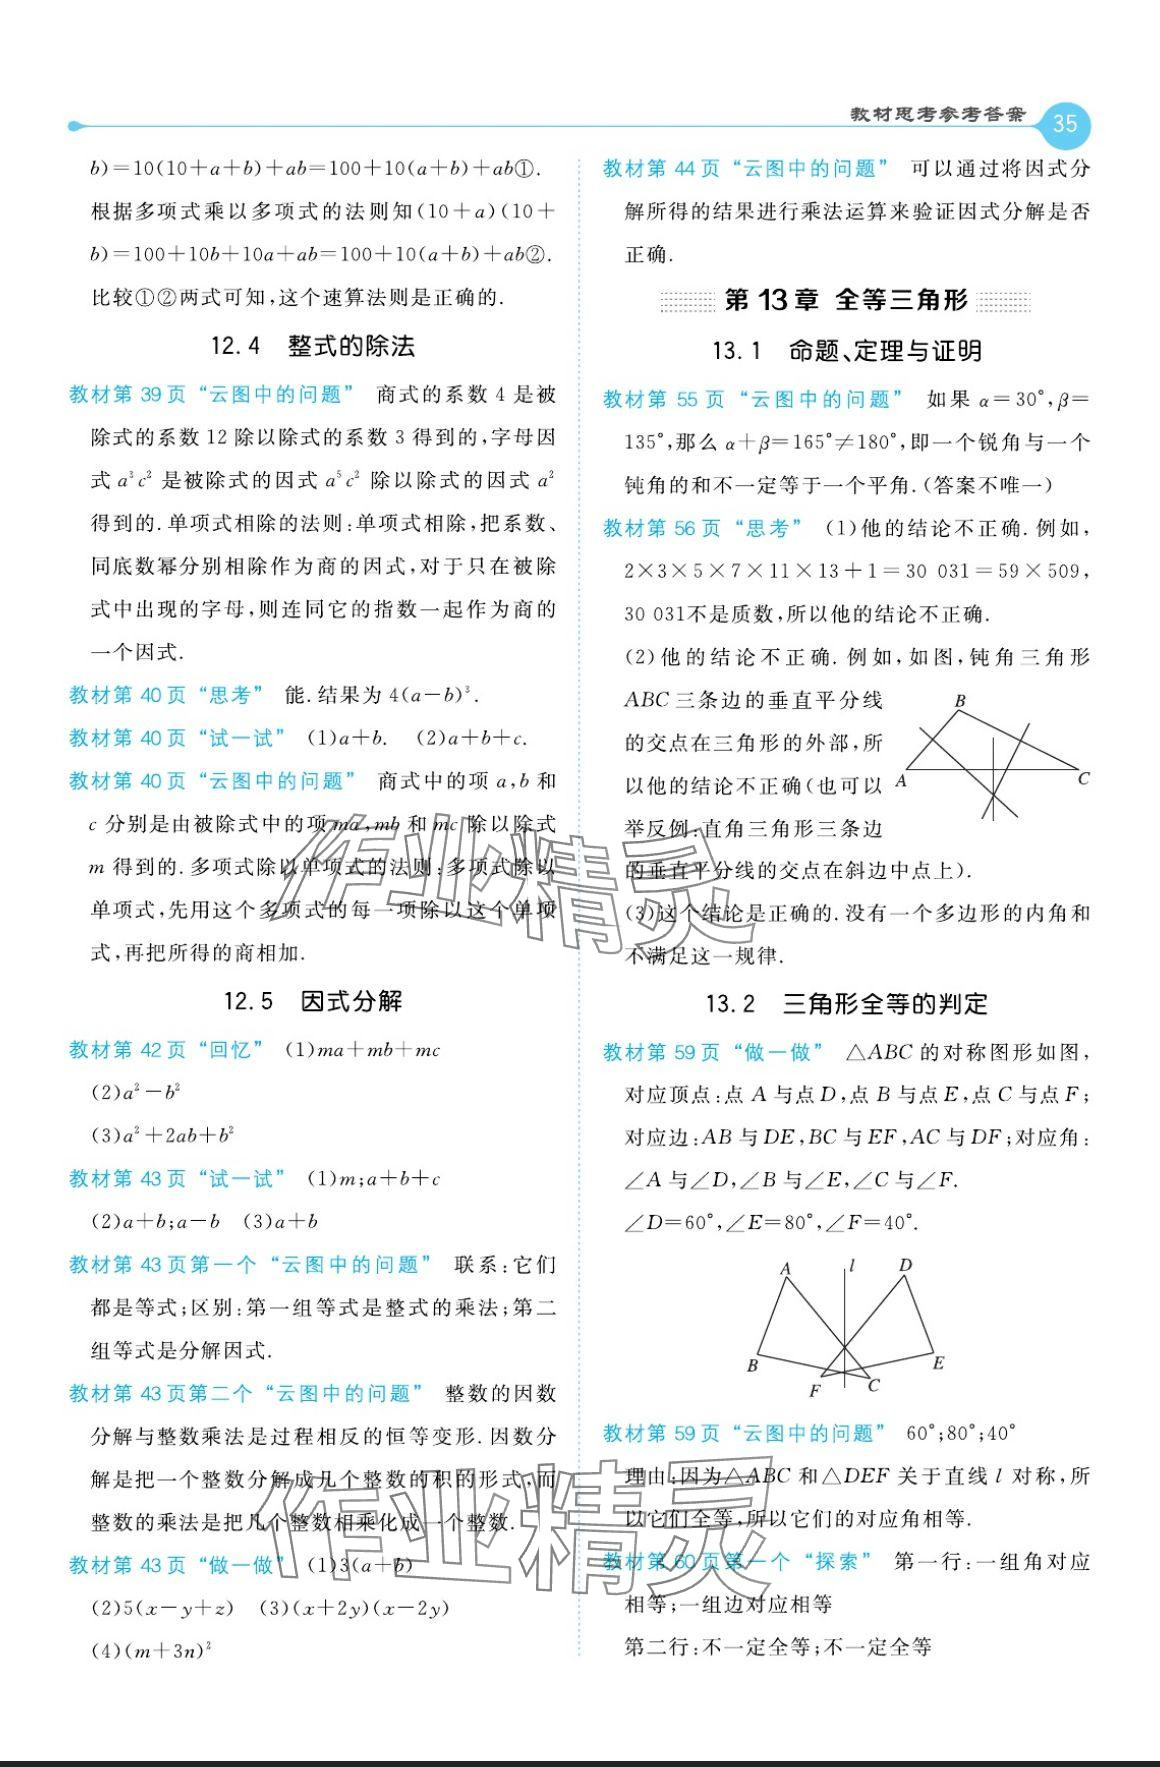 教材思考参考答案 35
b)=10(10+a+b)+ab=100+10(a+b)+ab①.
根据多项式乘以多项式的法则知(10+a)(10+
b)=100+10b+10a+ab=100+10(a+b)+ab②.
比较①②两式可知,这个速算法则是正确的.
12.4 整式的除法
教材第 39 页“云图中的问题” 商式的系数 4 是被
除式的系数 12 除以除式的系数 3 得到的,字母因
式 a³c² 是被除式的因式 a⁵c² 除以除式的因式 a²
得到的.单项式相除的法则:单项式相除,把系数、
同底数幂分别相除作为商的因式,对于只在被除
式中出现的字母,则连同它的指数一起作为商的
一个因式.
教材第 40 页“思考” 能.结果为 4(a-b)³.
教材第 40 页“试一试” (1)a+b. (2)a+b+c.
教材第 40 页“云图中的问题” 商式中的项 a,b 和
c 分别是由被除式中的项 ma,mb 和 mc 除以除式
m 得到的.多项式除以单项式的法则:多项式除以
单项式,先用这个多项式的每一项除以这个单项
式,再把所得的商相加.
12.5 因式分解
教材第 42 页“回忆” (1)ma+mb+mc
(2)a²-b²
(3)a²+2ab+b²
教材第 43 页“试一试” (1)m;a+b+c
(2)a+b;a-b (3)a+b
教材第 43 页第一个“云图中的问题” 联系:它们
都是等式;区别:第一组等式是整式的乘法;第二
组等式是分解因式.
教材第 43 页第二个“云图中的问题” 整数的因数
分解与整数乘法是过程相反的恒等变形.因数分
解是把一个整数分解成几个整数的积的形式,而
整数的乘法是把几个整数相乘化成一个整数.
教材第 43 页“做一做” (1)3(a+b)
(2)5(x-y+z) (3)(x+2y)(x-2y)
(4)(m+3n)²
教材第 44 页“云图中的问题” 可以通过将因式分
解所得的结果进行乘法运算来验证因式分解是否
正确.
第 13 章 全等三角形
13.1 命题、定理与证明
教材第 55 页“云图中的问题” 如果 α=30°,β=
135°,那么 α+β=165°≠180°,即一个锐角与一个
钝角的和不一定等于一个平角.(答案不唯一)
教材第 56 页“思考” (1)他的结论不正确.例如,
2×3×5×7×11×13+1=30 031=59×509,
30 031不是质数,所以他的结论不正确.
(2)他的结论不正确.例如,如图,钝角三角形
ABC 三条边的垂直平分线
的交点在三角形的外部,所
以他的结论不正确(也可以
举反例:直角三角形三条边
的垂直平分线的交点在斜边中点上).
B
A
C
(3)这个结论是正确的.没有一个多边形的内角和
不满足这一规律.
13.2 三角形全等的判定
教材第 59 页“做一做” △ABC 的对称图形如图,
对应顶点:点 A 与点 D,点 B 与点 E,点 C 与点 F;
对应边:AB 与 DE,BC 与 EF,AC 与 DF;对应角:
∠A 与∠D,∠B 与∠E,∠C 与∠F.
∠D=60°,∠E=80°,∠F=40°.
A l D
B E
F C
教材第 59 页“云图中的问题” 60°;80°;40°
理由:因为△ABC 和△DEF 关于直线 l 对称,所
以它们全等,所以它们的对应角相等.
教材第 60 页第一个“探索” 第一行:一组角对应
相等;一组边对应相等
第二行:不一定全等;不一定全等
作业精灵
作业精灵